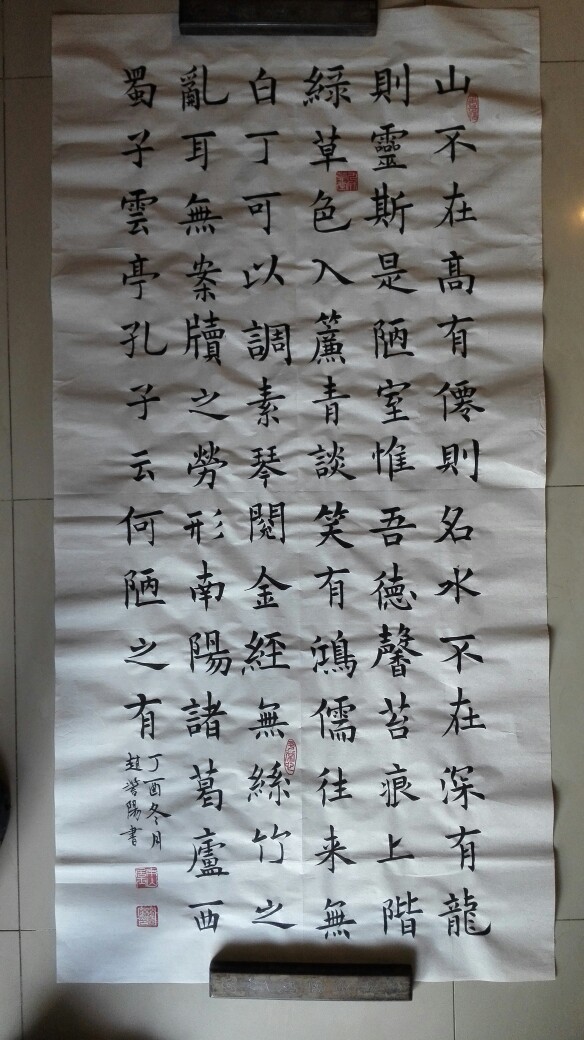 山不在高有僊則名水不在深有龍
則靈斯是陋室惟吾德馨苔痕上階
綠草色入簾青談笑有鴻儒往来無
白丁可以調素琴閱金經無絲竹之
亂耳無案牘之勞形南陽諸葛廬西
蜀子雲亭孔子云何陋之有
丁酉冬月
趙警陽書